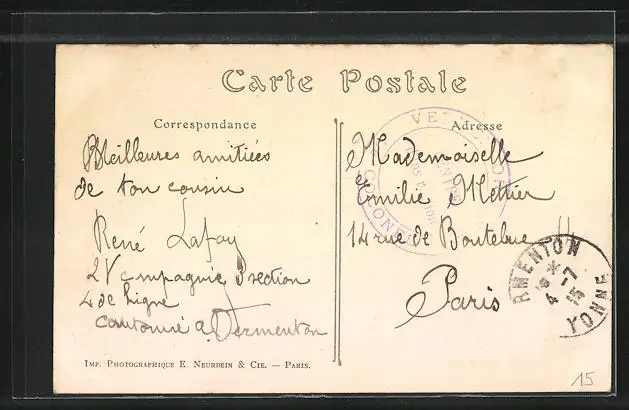 Carte Postale
Correspondance
Meilleures amitiées
de ton cousin
René Lafay
2V compagnie 3 section
4 de ligne
cantonné a Vermenton
IMP. PHOTOGRAPHIQUE E. NEURDEIN & CIE. — PARIS.
Adresse
Mademoiselle
Emilie Mettier
14 rue de Boutebrie
Paris
RMENTON
4 15-7 15
YONNE
COLONEL
15